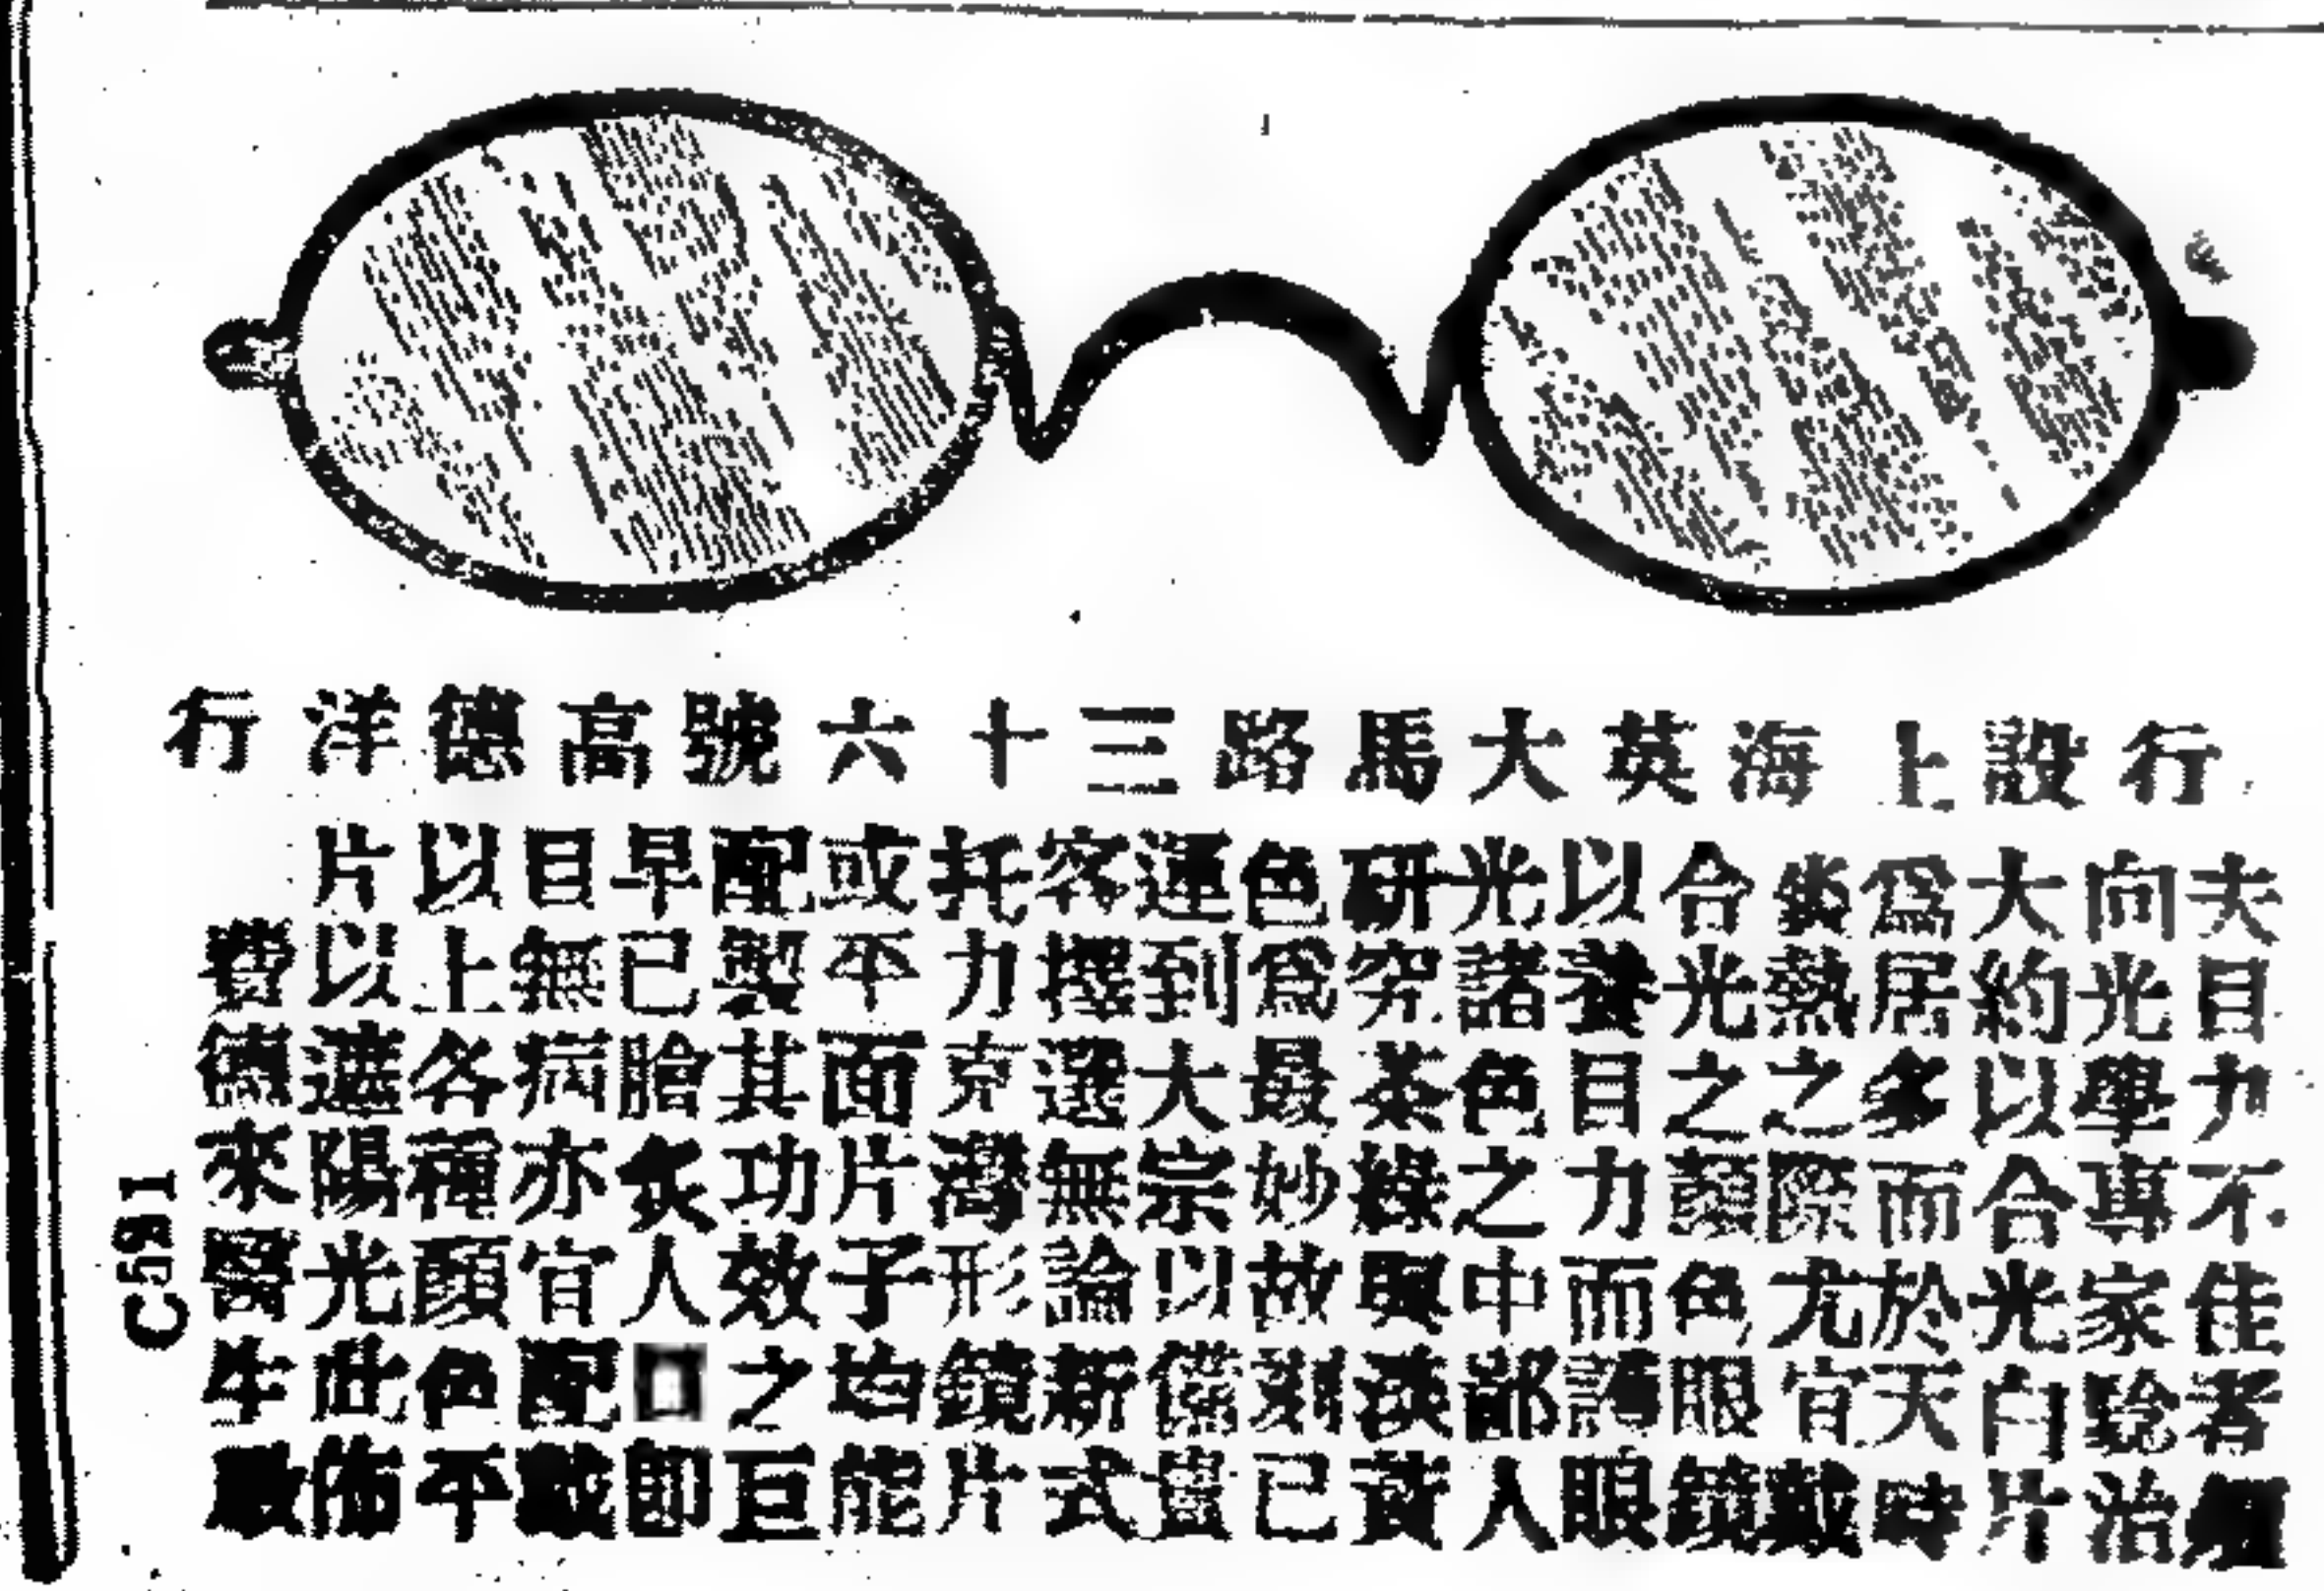 行設上海英大馬路三十六號高德洋行
夫目力不佳者經
向光學專家驗治
大約以合光白片
爲居多而於天時
炎熱之際尤宜戴
合光之顏色眼鏡
以養目力而護眼
光諸色之中鄙人
研究茶綠與淡黃
色爲最妙故刻已
運到大宗以備
客擇選無論新式
托力克灣形鏡片
或平面片子均能
配製其功效之巨
早已膾炙人口即
目無病亦宜配戴
以上各種顏色平
片以遮陽光此佈
費德來醫生啟
C581